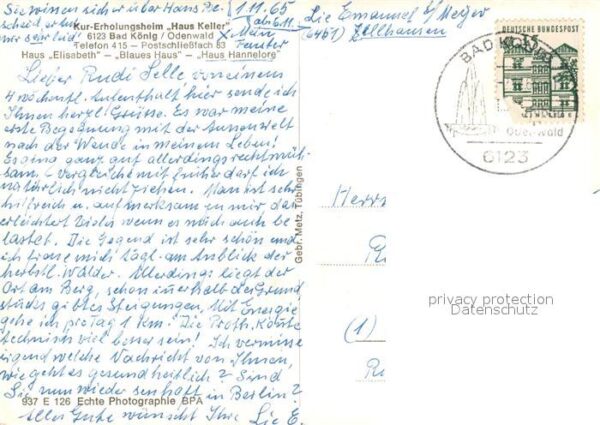 Sie wissen sicher über Hans Be-
scheid, er tut
mir sehr leid!
1.11.65
ab 6.11.
Lie Emanuel b/ Metzger
(6451) Zellhausen
Kur-Erholungsheim „Haus Keller"
6123 Bad König / Odenwald
Telefon 415 — Postschließfach 83
Haus „Elisabeth" — „Blaues Haus" — „Haus Hannelore"
x Mein
Fenster
Lieber Rudi Selle von einem
4 wöchentl. Aufenthalt hier sende ich
Ihnen herzl. Grüsse. Es war meine
erste Begegnung mit der Aussenwelt
nach der Wende in meinem Leben!
Es ging ganz gut allerdings recht müh-
sam. Vergleiche mit früher darf ich
natürlich nicht ziehen. Man ist sehr
hilfreich u. aufmerksam zu mir, das
erleichtert Vieles wenn es mich auch be
lastet. Die Gegend ist sehr schön und
ich freue mich tägl. am Anblick der
herbstl. Wälder. Allerdings liegt der
Ort am Berg, schon ausserhalb der Grund
stücks gibt es Steigungen. Mit Energie
gehe ich pro Tag 1 km! Die Proth. könnte
technisch viel besser sein! Ich vermisse
irgend welche Nachricht von Ihnen,
wie geht es gesundheitlich? Sind
Sie nun wieder sesshaft in Berlin?
Alles Gute wünscht Ihre Lie E.
937 E 126 Echte Photographie BPA
Gebr. Metz, Tübingen
DEUTSCHE BUNDESPOST
15
BAD KÖNIG
Odenwald
6123
Herrn
(1)
privacy protection
Datenschutz